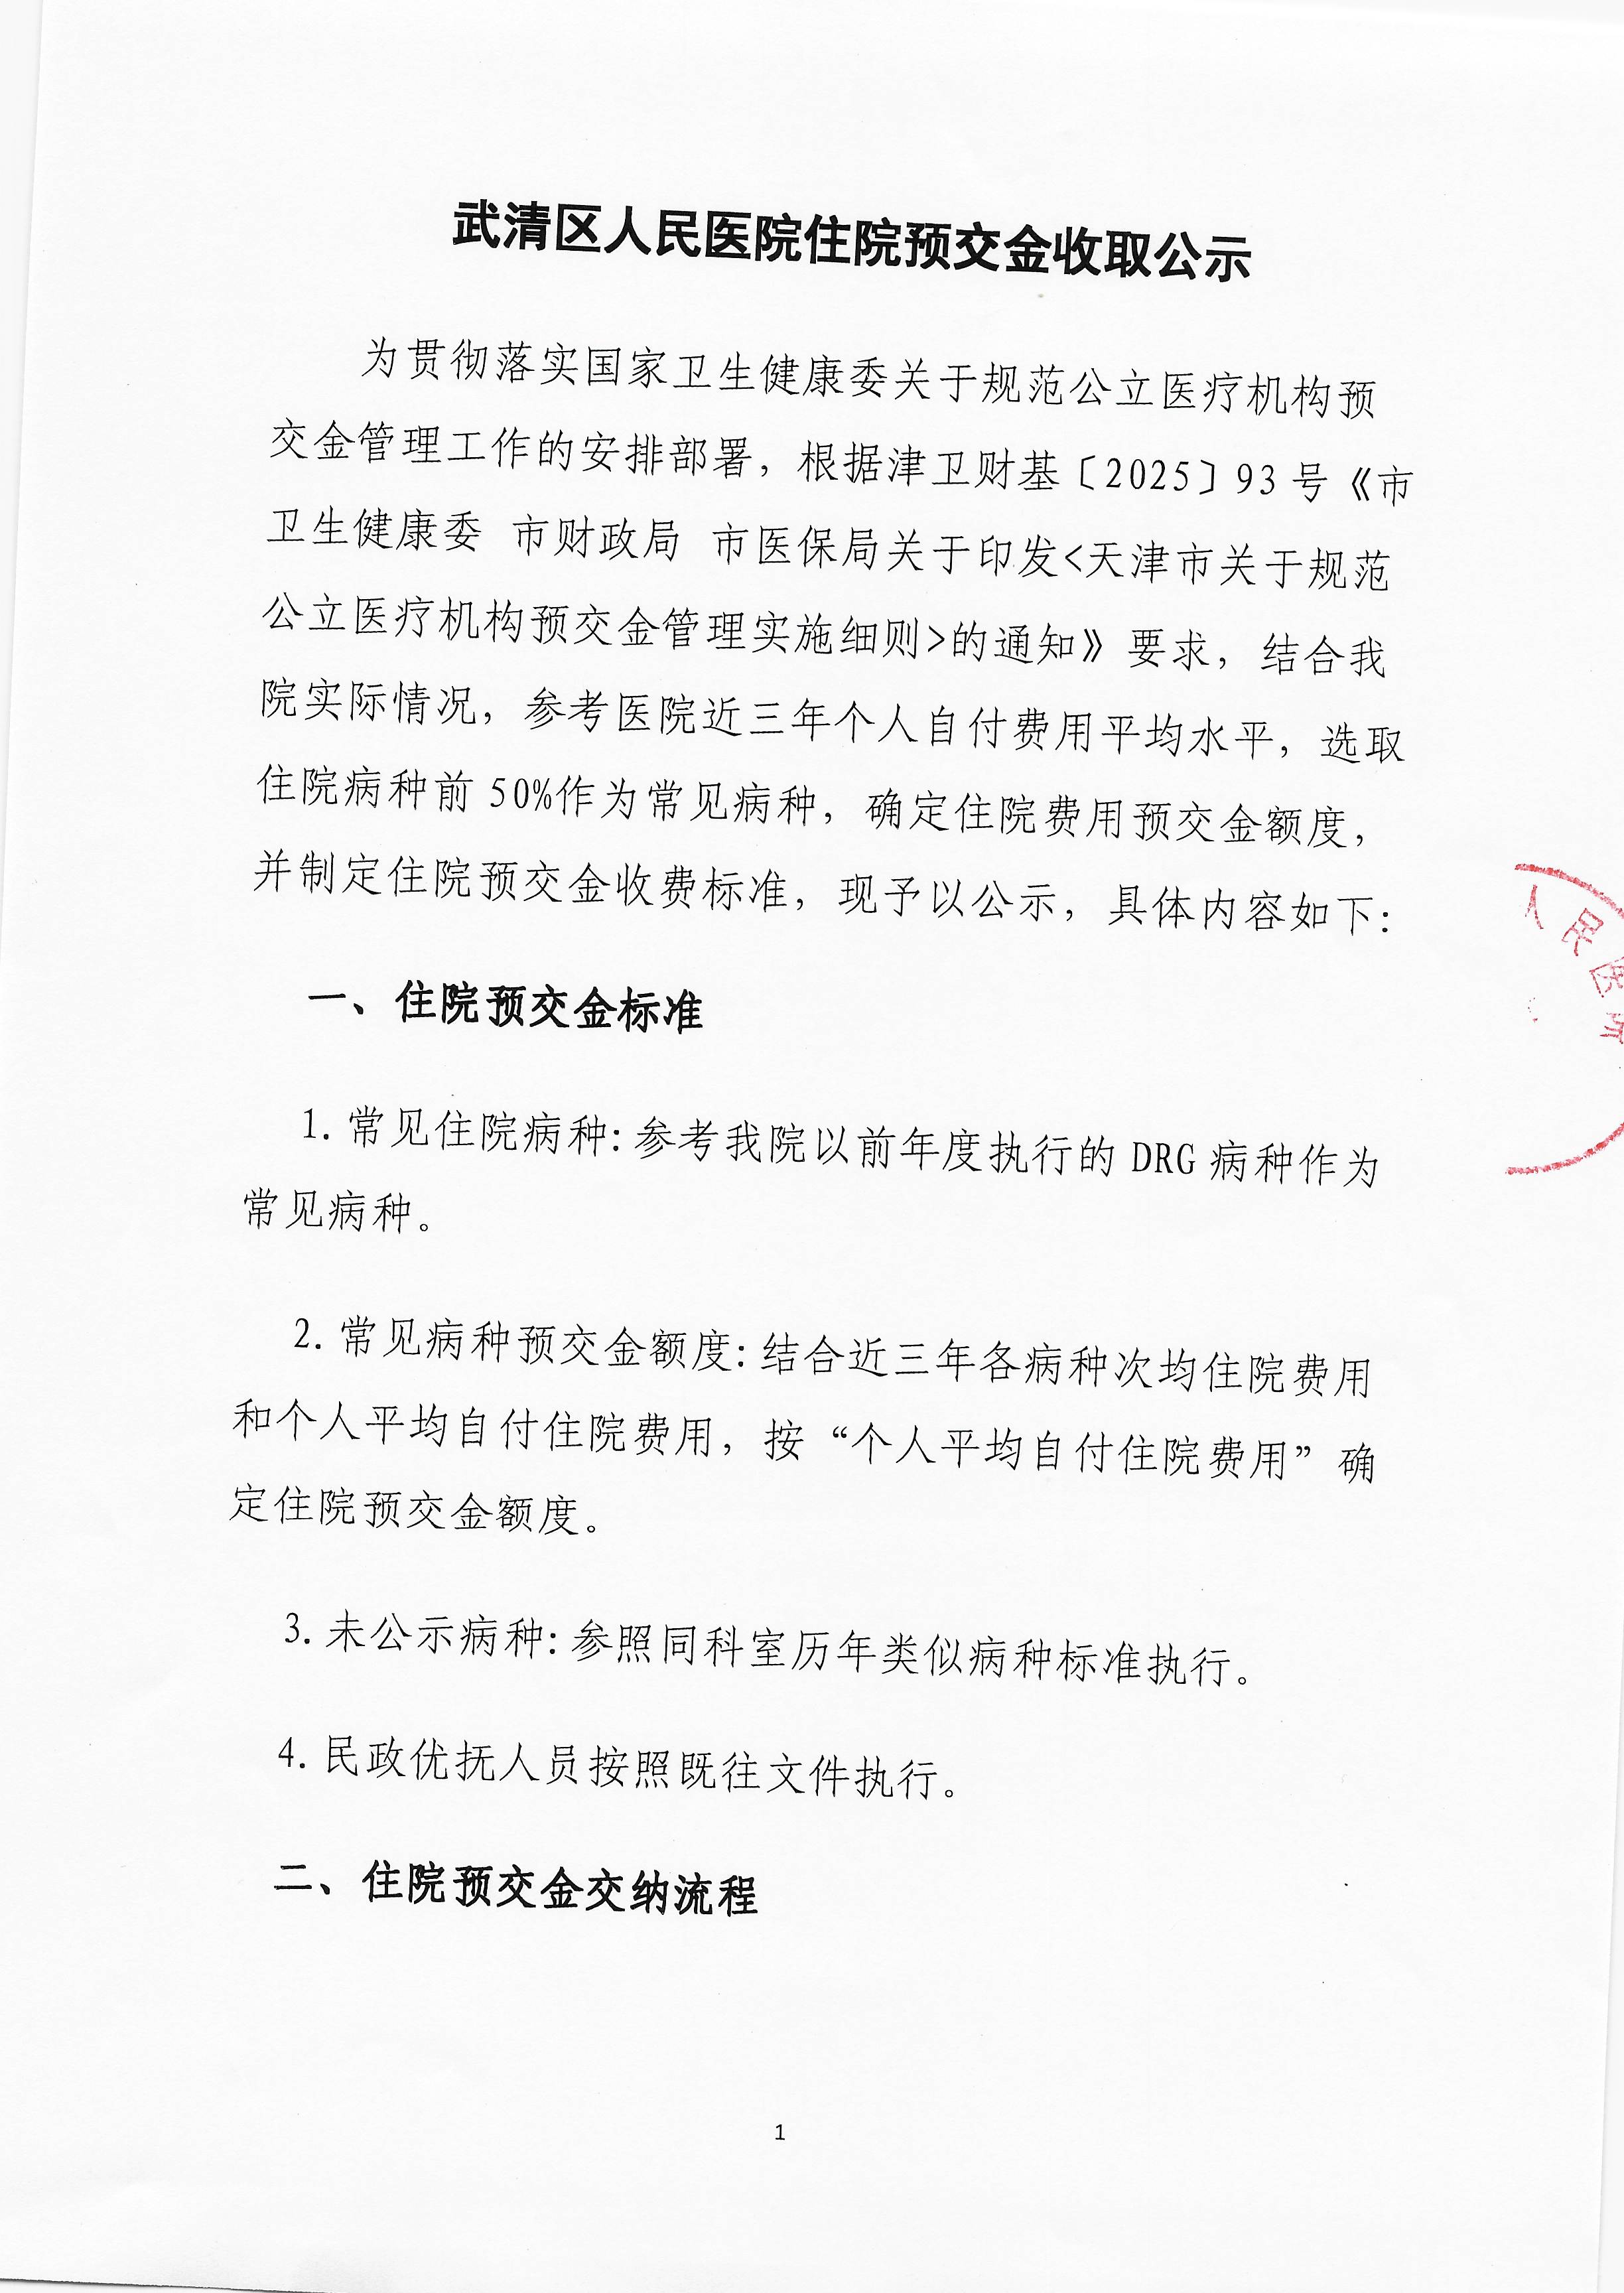 武清区人民医院住院预交金收取公示
为贯彻落实国家卫生健康委关于规范公立医疗机构预
交金管理工作的安排部署，根据津卫财基〔2025〕93号《市
卫生健康委 市财政局 市医保局关于印发<天津市关于规范
公立医疗机构预交金管理实施细则>的通知》要求，结合我
院实际情况，参考医院近三年个人自付费用平均水平，选取
住院病种前50%作为常见病种，确定住院费用预交金额度，
并制定住院预交金收费标准，现予以公示，具体内容如下：
人民医
一、住院预交金标准
1.常见住院病种：参考我院以前年度执行的DRG病种作为
常见病种。
2.常见病种预交金额度：结合近三年各病种次均住院费用
和个人平均自付住院费用，按“个人平均自付住院费用”确
定住院预交金额度。
3.未公示病种：参照同科室历年类似病种标准执行。
4.民政优抚人员按照既往文件执行。
二、住院预交金交纳流程
1